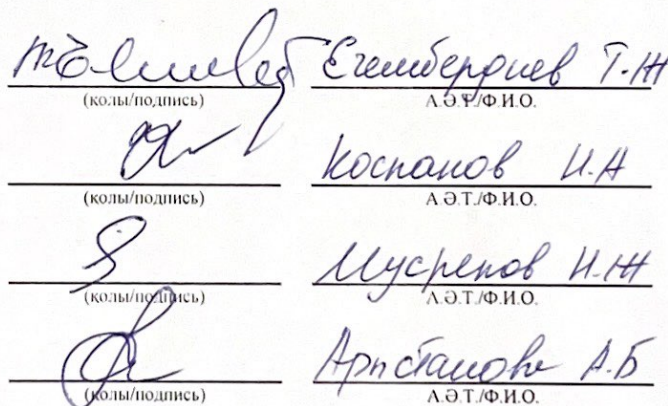 Егембердиев Т.Ж
(қолы/подпись) А.Ә.Т./Ф.И.О.
Коспанов И.А
(қолы/подпись) А.Ә.Т./Ф.И.О.
Мусрепов Н.Ж
(қолы/подпись) А.Ә.Т./Ф.И.О.
А.Б
(қолы/подпись) А.Ә.Т./Ф.И.О.